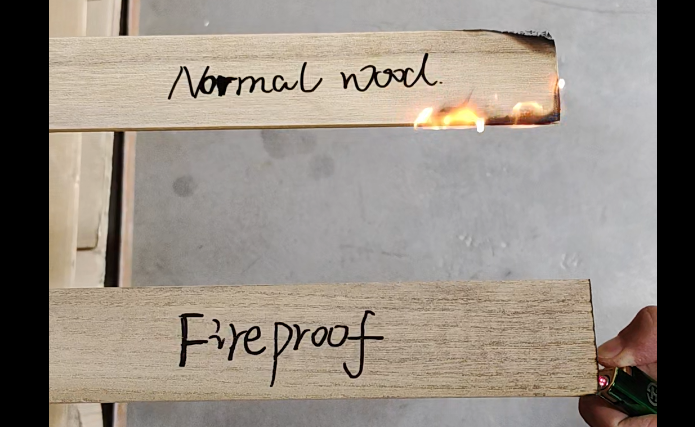 Normal wood.
Fireproof